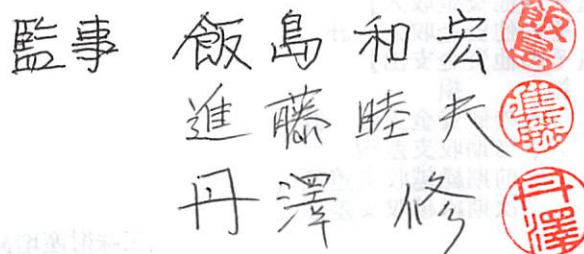 監事 飯島和宏 飯島
進藤睦夫 進藤
丹澤修 丹澤